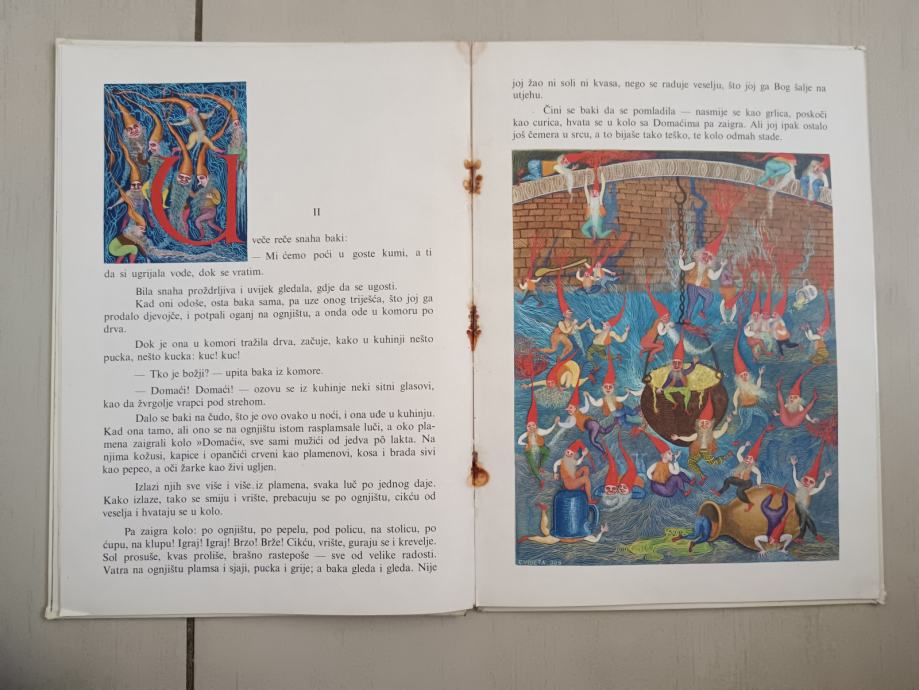 U
II
veče reče snaha baki:
— Mi ćemo poći u goste kumi, a ti
da si ugrijala vode, dok se vratim.
Bila snaha proždrljiva i uvijek gledala, gdje da se ugosti.
Kad oni odoše, osta baka sama, pa uze onog triješća, što joj ga
prodalo djevojče, i potpali oganj na ognjištu, a onda ode u komoru po
drva.
Dok je ona u komori tražila drva, začuje, kako u kuhinji nešto
pucka, nešto kucka: kuc! kuc!
— Tko je božji? — upita baka iz komore.
— Domaći! Domaći! — ozovu se iz kuhinje neki sitni glasovi,
kao da žvrgolje vrapci pod strehom.
Dalo se baki na čudo, što je ovo ovako u noći, i ona uđe u kuhinju.
Kad ona tamo, ali ono se na ognjištu istom rasplamsale luči, a oko pla-
mena zaigrali kolo »Domaći«, sve sami mužići od jedva pô lakta. Na
njima kožusi, kapice i opančići crveni kao plamenovi, kosa i brada sivi
kao pepeo, a oči žarke kao živi ugljen.
Izlazi njih sve više i više iz plamena, svaka luč po jednog daje.
Kako izlaze, tako se smiju i vrište, prebacuju se po ognjištu, cikću od
veselja i hvataju se u kolo.
Pa zaigra kolo: po ognjištu, po pepelu, pod policu, na stolicu, po
ćupu, na klupu! Igraj! Igraj! Brzo! Brže! Cikću, vrište, guraju se i krevelje.
Sol prosuše, kvas proliše, brašno rastepoše — sve od velike radosti.
Vatra na ognjištu plamsa i sjaji, pucka i grije; a baka gleda i gleda. Nije
joj žao ni soli ni kvasa, nego se raduje veselju, što joj ga Bog šalje na
utjehu.
Čini se baki da se pomladila — nasmije se kao grlica, poskoči
kao curica, hvata se u kolo sa Domaćima pa zaigra. Ali joj ipak ostalo
još čemera u srcu, a to bijaše tako teško, te kolo odmah stade.